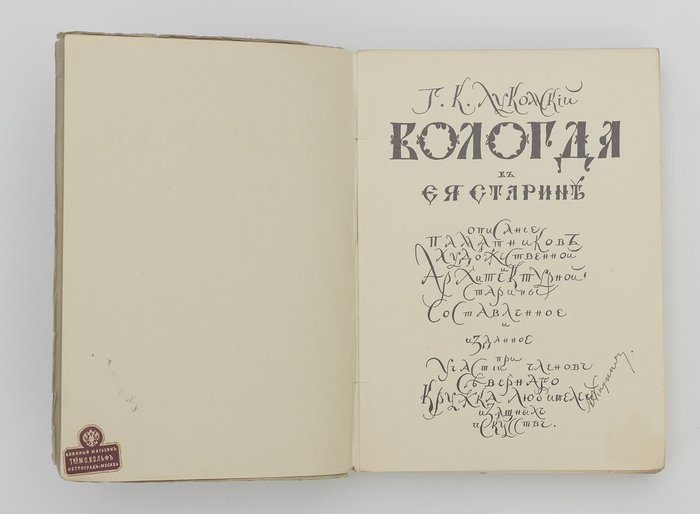 КНИЖНЫЙ МАГАЗИНЪ
Т-ва М.О.ВОЛЬФЪ
ПЕТРОГРАДЪ-МОСКВА
Г. К. Лукомскiй
ВОЛОГДА
въ
ЕЯ СТАРИНѢ
описанiе
памятниковъ
художественной
и
архитектурной
старины
составленное
и
изданное
при
участiи членовъ
Сѣвернаго
Кружка Любителей
изящныхъ
искусствъ.